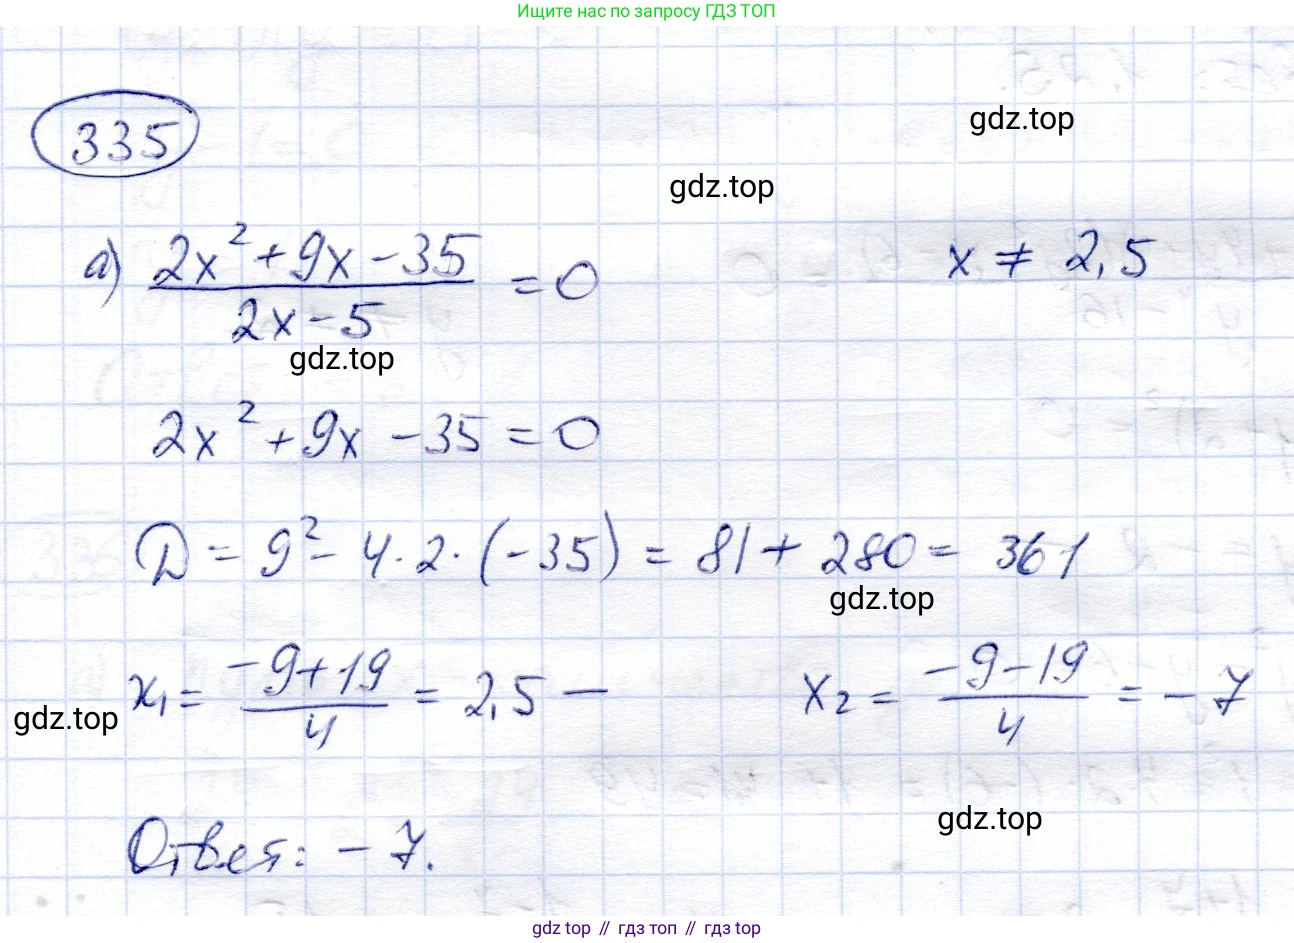 Ищите нас по запросу ГДЗ ТОП
335
gdz.top
gdz.top
а) (2x² + 9x - 35)/(2x - 5) = 0    x ≠ 2,5
gdz.top
2x² + 9x - 35 = 0
D = 9² - 4 · 2 · (-35) = 81 + 280 = 361
gdz.top
x₁ = (-9 + 19)/4 = 2,5 —    x₂ = (-9 - 19)/4 = -7
gdz.top
gdz.top
Ответ: -7.
gdz top // гдз топ // гдз top